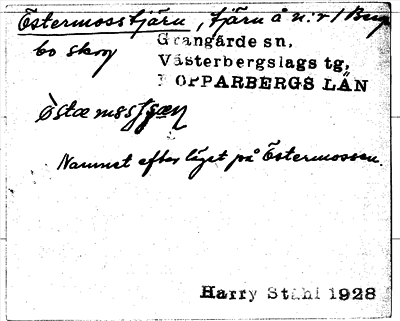 Östermosstjärn, tjärn å n:r 1 Berg
bo skog
Grangärde sn.
Västerbergslags tg,
KOPPARBERGS LÄN
Namnet efter läget på Östermossen.
Harry Ståhl 1928